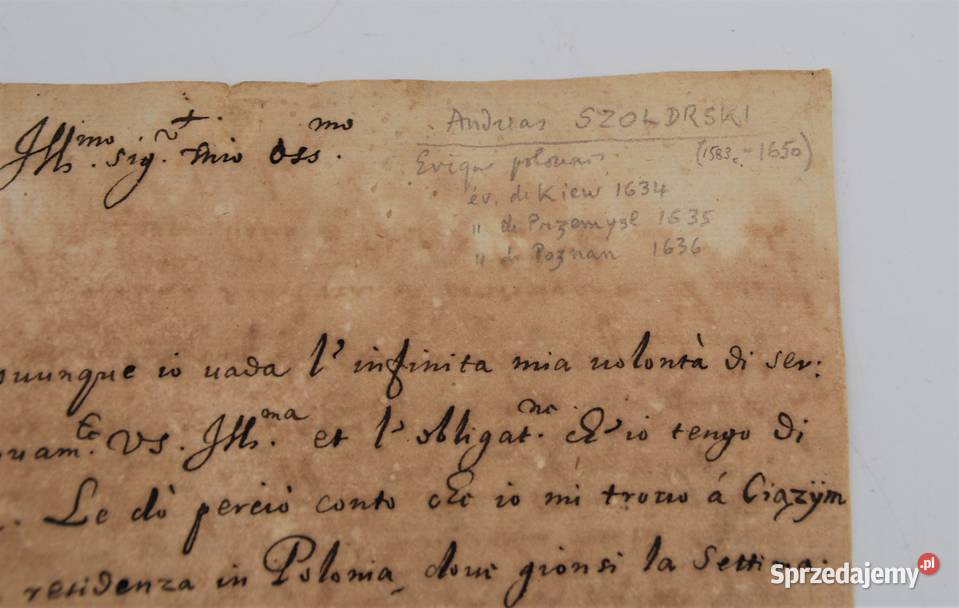 Ill.mo Sig.r mio Oss.mo
Andreas SZOLDRSKI
(1583c. - 1650)
Evique polonais
év. de Kiew 1634
" de Przemysl 1635
" de Poznan 1636
ouunque io uada l' infinita mia uolontà di ser:
VS. Ill.ma et l' obligat.ne ch' io tengo di
Le dò perciò conto che io mi trouo á Ciązÿm
residenza in Polonia, doue gionsi la Settima
Sprzedajemy.pl